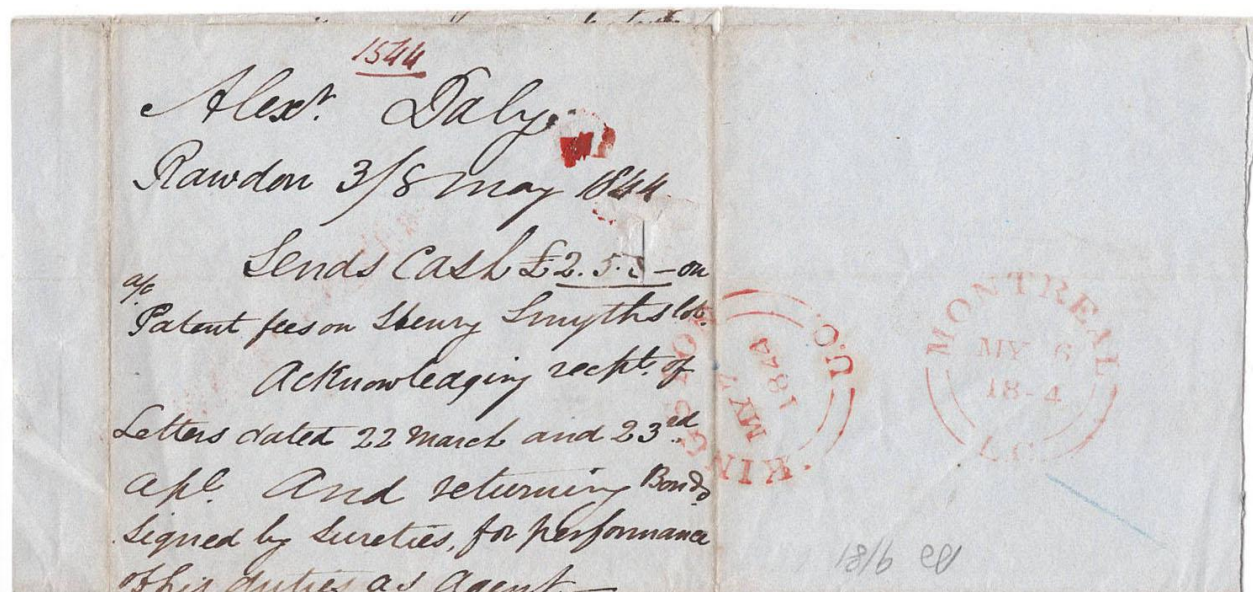 1544
Alexr. Daly.
Rawdon 3/8 May 1844
Sends Cash £2.5. — on
a/c
Patent fees on Henry Smyths lot.
Acknowledging recpt. of
Letters dated 22 March and 23rd
apl. And returning Bonds
signed by Sureties, for performance
of his duties as Agent —
KINGSTON
U.C.
MY 7
1844
MONTREAL
MY 6
18-4
L.C.
18/6